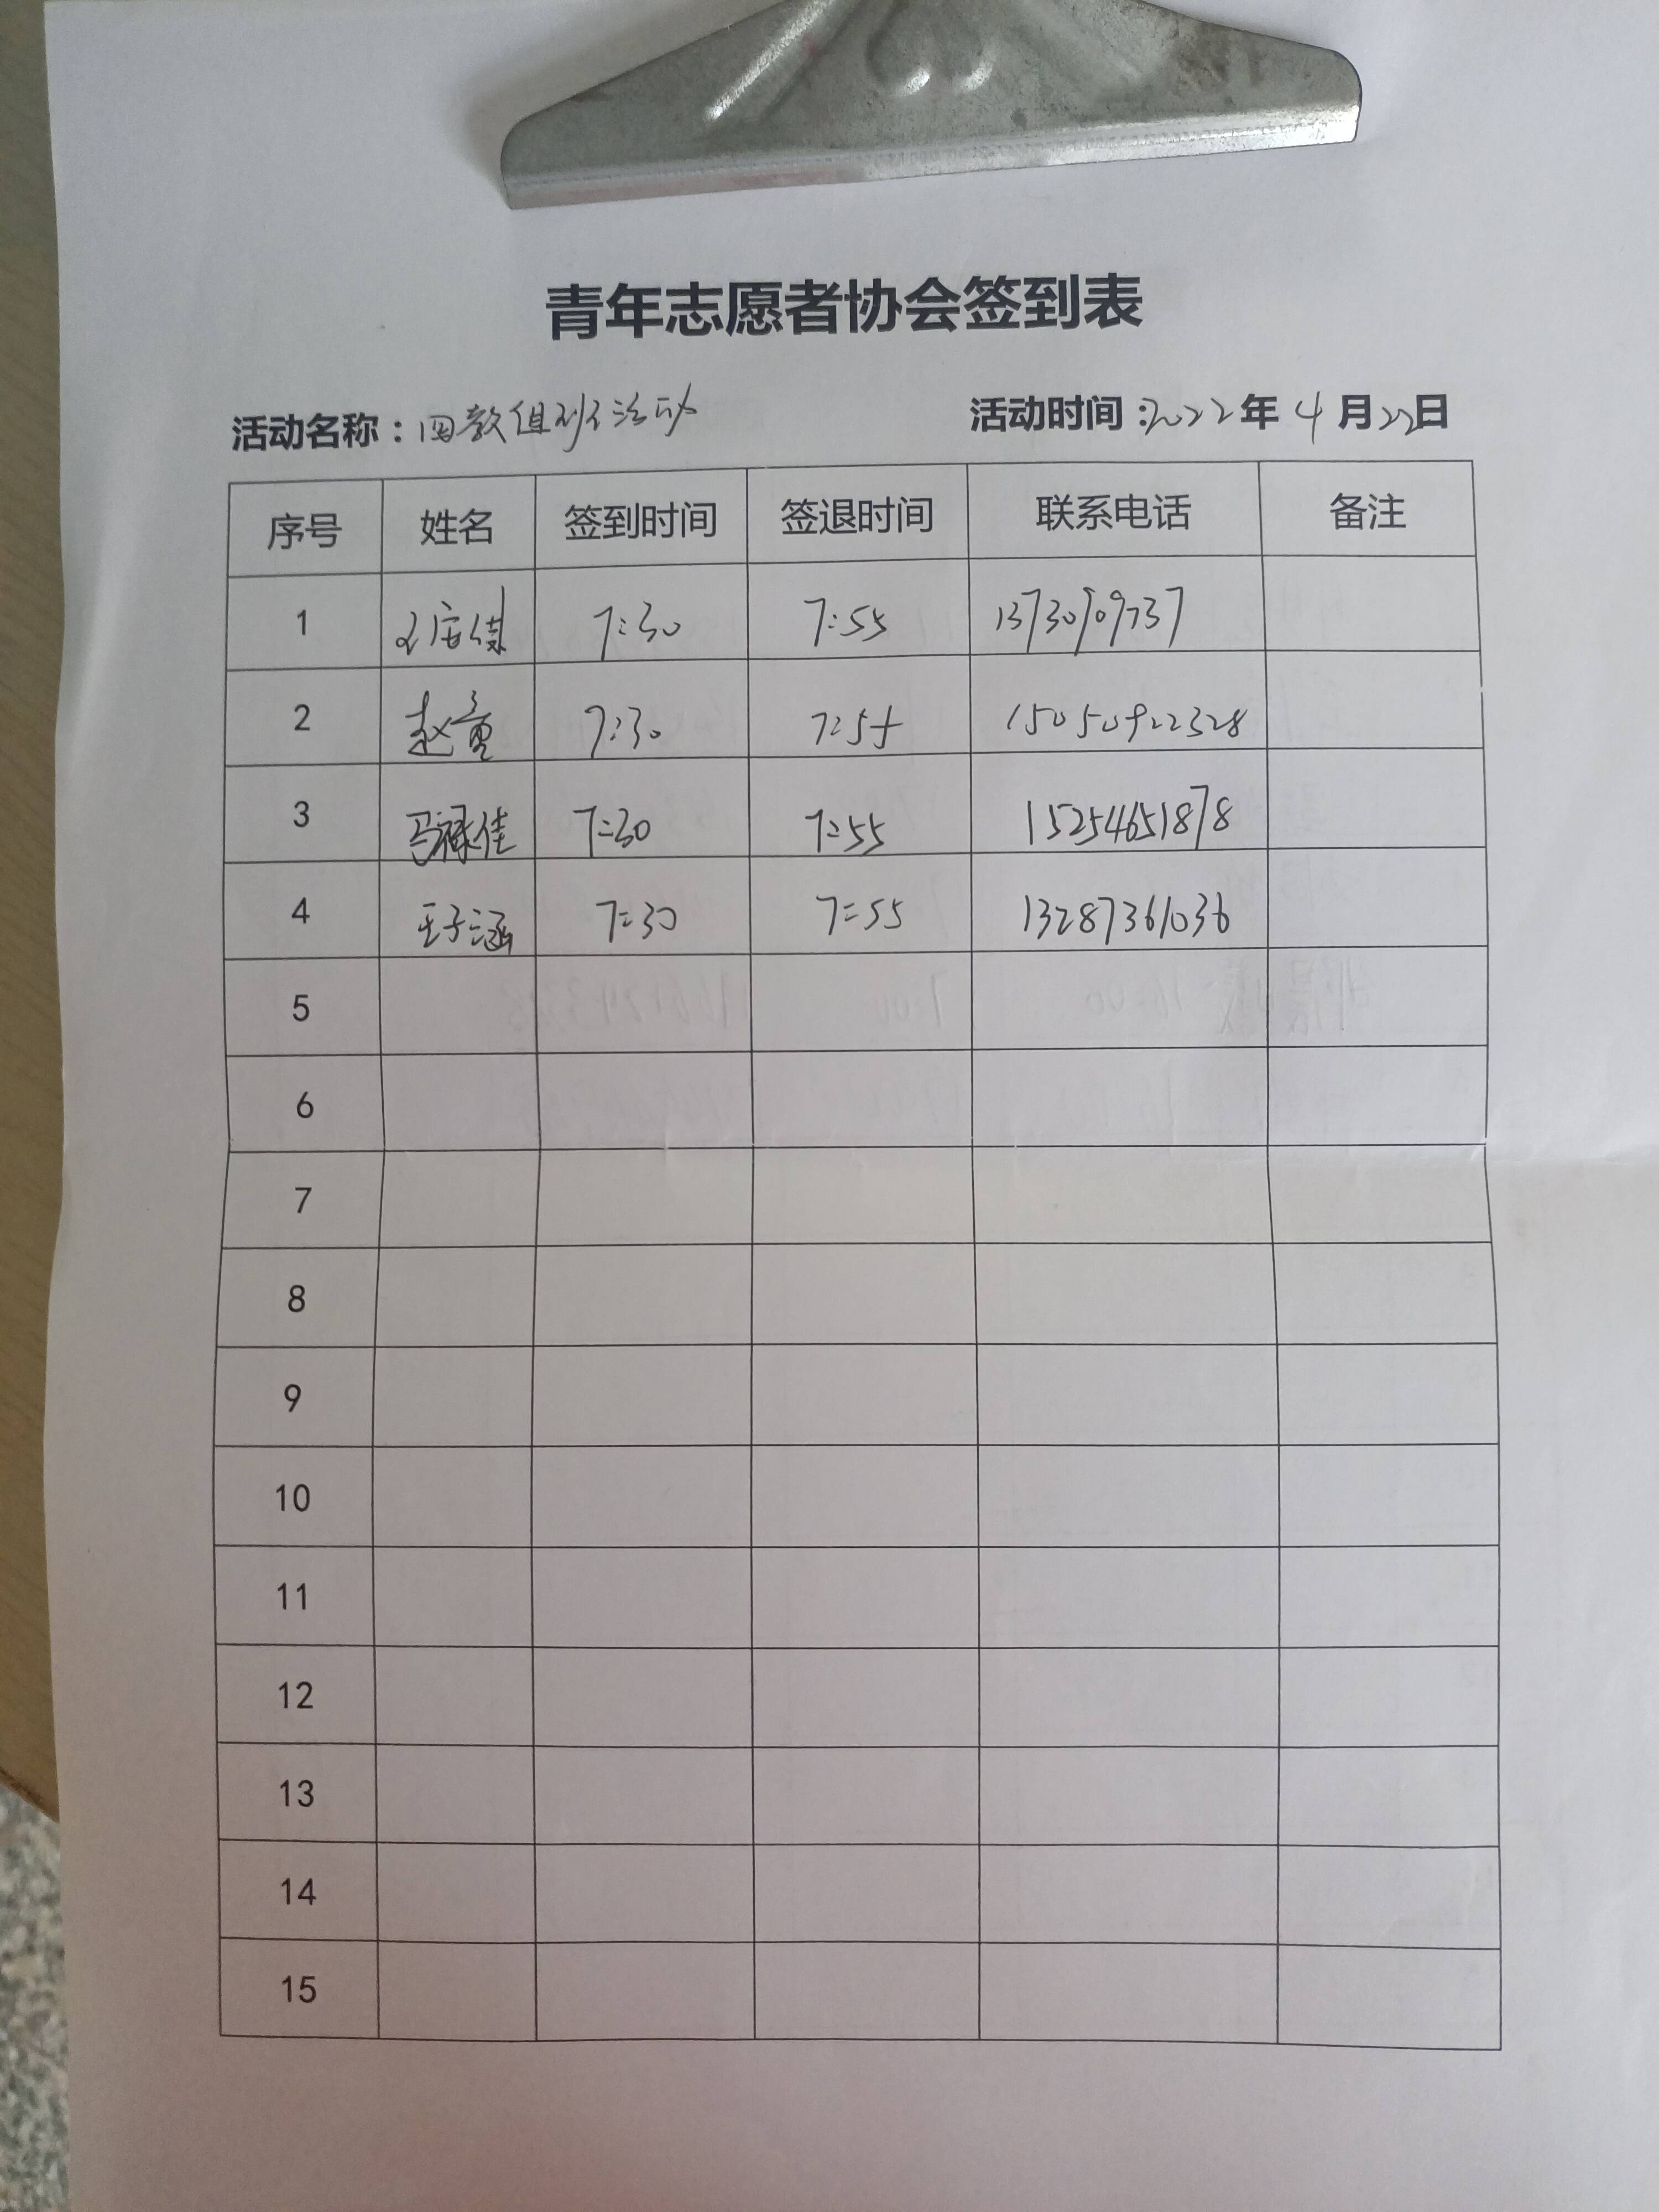 青年志愿者协会签到表
活动名称：四教值班活动 活动时间：2022年4月22日
序号 姓名 签到时间 签退时间 联系电话 备注
1 7:30 7:55 13730909737
2 赵童 7:30 7:55 15050922328
3 马禄佳 7:30 7:55 15254651878
4 王子涵 7:30 7:55 13287361036
5
6
7
8
9
10
11
12
13
14
15